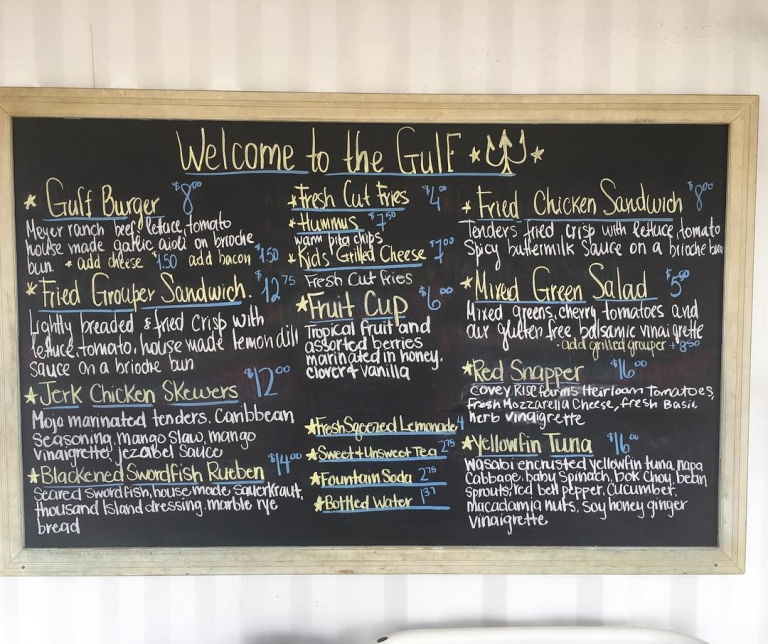 Welcome to the Gulf
Gulf Burger $8.00
Meyer ranch beef, lettuce, tomato
house made garlic aioli on brioche
bun. * add cheese $1.50 add bacon $1.50
Fried Grouper Sandwich. $12.75
Lightly breaded & fried crisp with
lettuce, tomato, house made lemon dill
sauce on a brioche bun
Jerk Chicken Skewers $12.00
Mojo marinated tenders. Caribbean
seasoning, mango slaw, mango
vinaigrette, jezabel sauce
Blackened Swordfish Rueben $14.00
Seared swordfish, house made sauerkraut,
thousand Island dressing. marble rye
bread
Fresh Cut Fries $4.00
Hummus $7.50
warm pita chips
Kids' Grilled Cheese $7.00
Fresh Cut fries
Fruit Cup $6.00
Tropical fruit and
assorted berries
marinated in honey.
clover & vanilla
Fresh Sqeezed Lemonade 4
Sweet & Unsweet Tea 2.75
Fountain Soda 2.75
Bottled Water 1.37
Fried Chicken Sandwich $8.00
Tenders fried crisp with lettuce, tomato
Spicy buttermilk sauce on a brioche bun
Mixed Green Salad $5.00
Mixed greens, cherry tomatoes and
our gluten free balsamic vinaigrette
- add grilled grouper + 8.50
Red Snapper $16.00
covey Rise farms Heirloom Tomatoes,
fresh Mozzarella Cheese, fresh Basil,
herb vinaigrette
Yellowfin Tuna $16.00
wasabi encrusted yellowfin tuna, napa
Cabbage, baby Spinach, bok choy, bean
sprouts, red bell pepper, cucumber,
macadamia nuts, soy honey ginger
vinaigrette